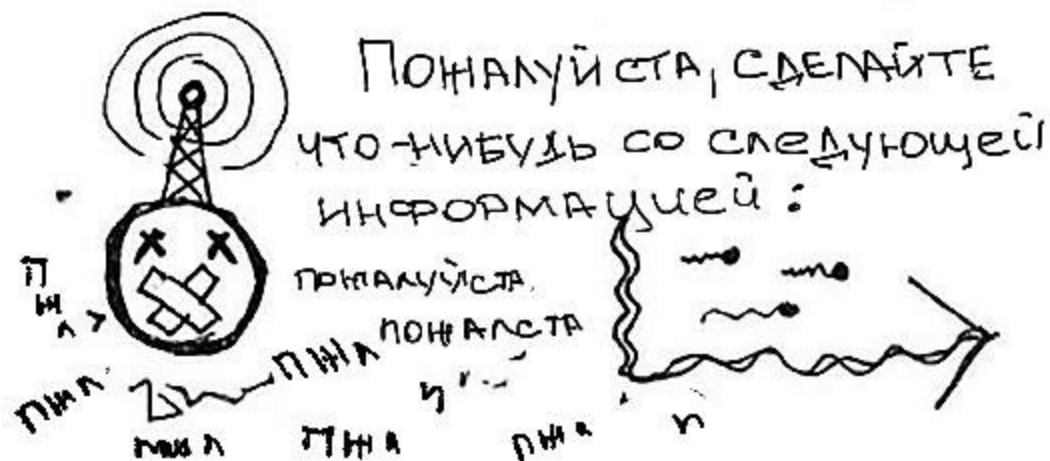 ПОЖАЛУЙСТА, СДЕЛАЙТЕ
ЧТО-НИБУДЬ СО СЛЕДУЮЩЕЙ
ИНФОРМАЦИЕЙ:
ПОЖАЛУЙСТА
ПОЖАЛСТА
ПЖЛ
ПЖЛ
ПЖЛ
ПЖЛ
ПЖЛ
ПЖЛ